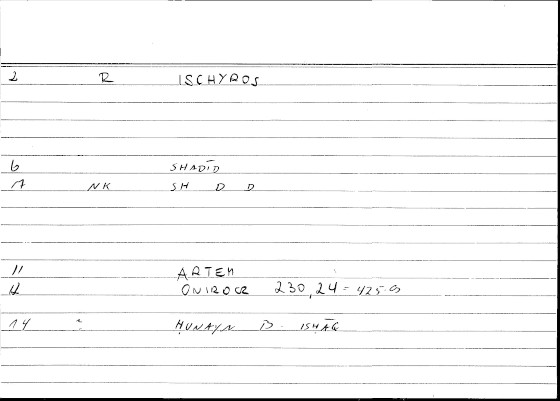 2 R ISCHYROS
6 SHADĪD
7 NK SH D D
11 ARTEM
12 ONIROCR 230,24 = 425.9
14 ḤUNAYN B. ISḤĀQ